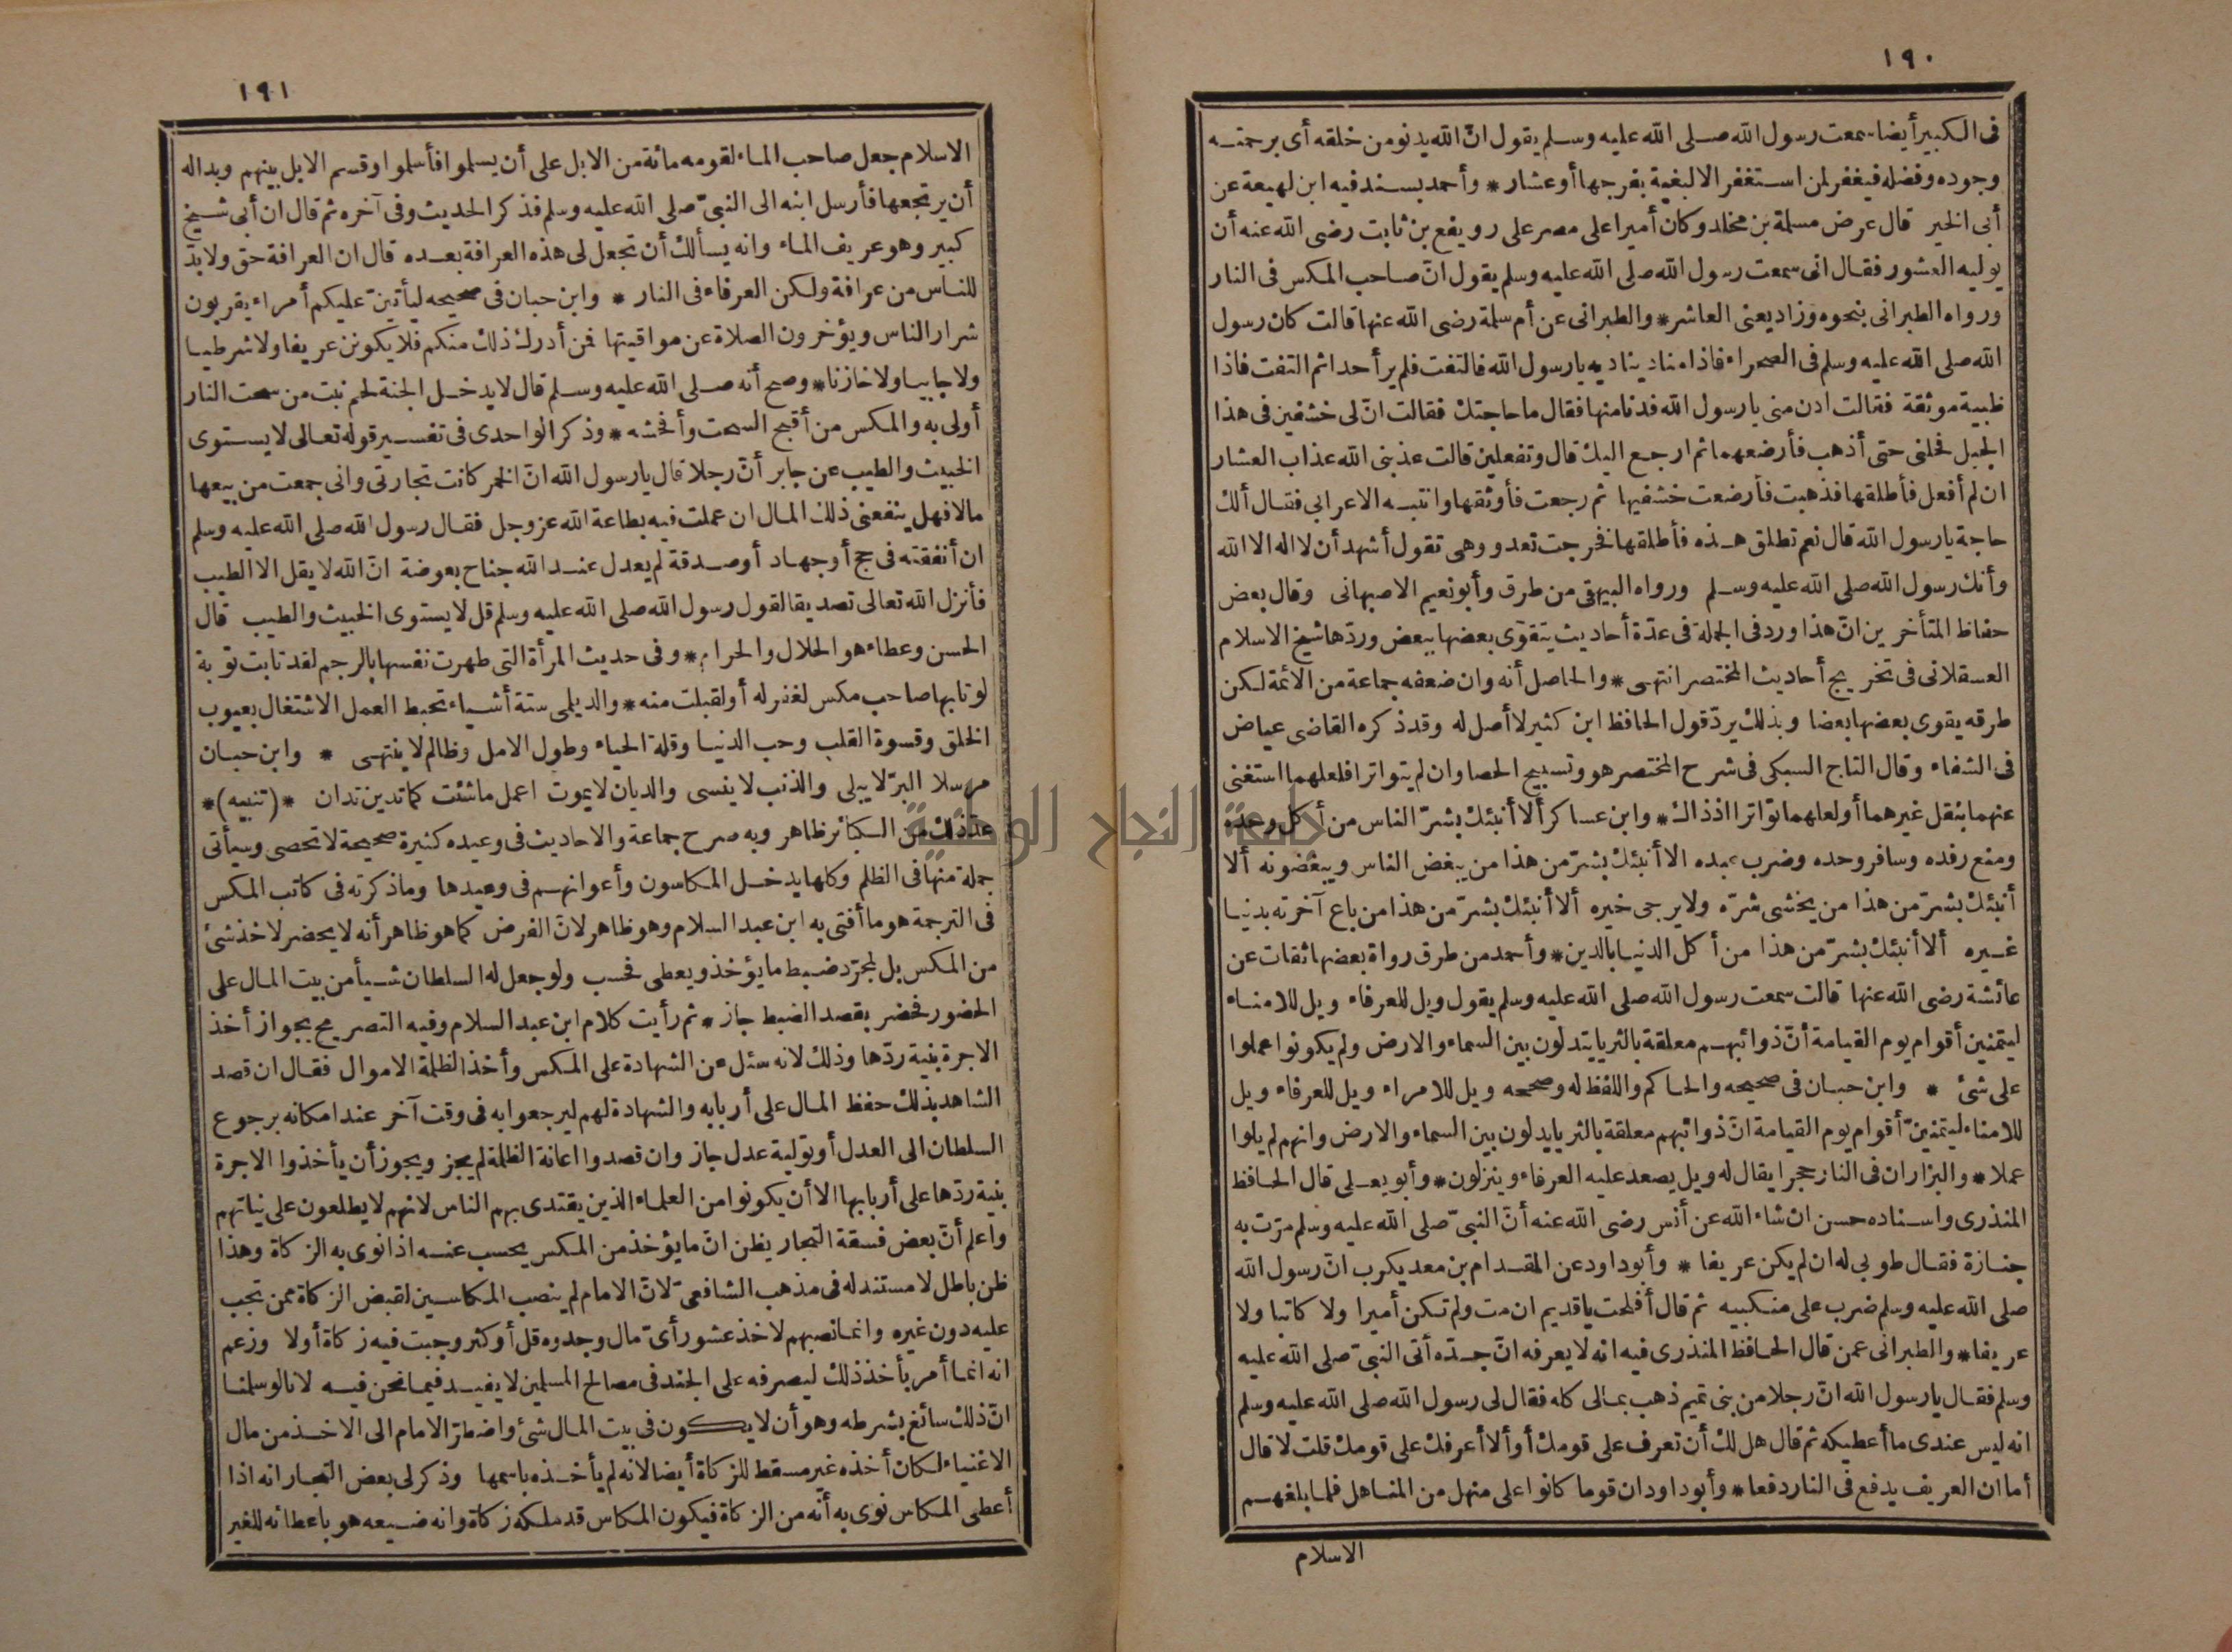 ١٩٠
فى الكبير أيضا سمعت رسول الله صلى الله عليه وسلم يقول ان الله يدنو من خلقه أى برحمته
وجوده وفضله فيغفر لمن استغفر الا لبغية بفرجها أو عشار * وأحمد بسند فيه ابن لهيعة عن
أبى الخير قال عرض مسلمة بن مخلد وكان أميرا على مصر على رويفع بن ثابت رضى الله عنه أن
يوليه العشور فقال انى سمعت رسول الله صلى الله عليه وسلم يقول انّ صاحب المكس فى النار
ورواه الطبرانى بنحوه وزاد يعنى العاشر * والطبرانى عن أم سلمة رضى الله عنها قالت كان رسول
الله صلى الله عليه وسلم فى الصحراء فاذا مناد يناديه يا رسول الله فالتفت فلم ير أحدا ثم التفت فاذا
ظبية موثقة فقالت ادن منى يا رسول الله فدنا منها فقال ما حاجتك فقالت انّ لى خشفين فى هذا
الجبل فحلنى حتى أذهب فأرضعهما ثم ارجع اليك قال وتفعلين قالت عذبنى الله عذاب العشار
ان لم أفعل فأطلقها فذهبت فأرضعت خشفيها ثم رجعت فأوثقها وانتبه الاعرابى فقال ألك
حاجة يا رسول الله قال نعم تطلق هذه فأطلقها فخرجت تعدو وهى تقول أشهد أن لا اله الا الله
وأنك رسول الله صلى الله عليه وسلم ورواه البيهقى من طرق وأبو نعيم الاصبهانى وقال بعض
حفاظ المتأخرين انّ هذا ورد فى الجملة فى عدّة أحاديث يتقوّى بعضها ببعض وردّها شيخ الاسلام
العسقلانى فى تخريج أحاديث المختصر انتهى * والحاصل أنه وان ضعفه جماعة من الأئمة لكن
طرقه يقوى بعضها بعضا وبذلك يردّ قول الحافظ ابن كثير لا أصل له وقد ذكره القاضى عياض
فى الشفاء وقال التاج السبكى فى شرح المختصر هو وتسبيح الحصا وان لم يتواترا فلعلهما استغنى
عنهما بنقل غيرهما أو لعلهما تواترا اذ ذاك * وابن عساكر ألا أنبئك بشرّ الناس من أكل وحده
ومنع رفده وسافر وحده وضرب عبده الا أنبئك بشرّ من هذا من يبغض الناس ويبغضونه ألا
أنبئك بشرّ من هذا من يخشى شرّه ولا يرجى خيره ألا أنبئك بشرّ من هذا من باع آخرته بدنيا
غيره ألا أنبئك بشرّ من هذا من أكل الدنيا بالدين * وأحمد من طرق رواة بعضها ثقات عن
عائشة رضى الله عنها قالت سمعت رسول الله صلى الله عليه وسلم يقول ويل للعرفاء ويل للامناء
ليتمنين أقوام يوم القيامة أنّ ذوائبهم معلقة بالثريا يتدلون بين السماء والارض ولم يكونوا عملوا
على شئ * وابن حبان فى صحيحه والحاكم واللفظ له وصححه ويل للامراء ويل للعرفاء ويل
للامناء ليتمنينّ أقوام يوم القيامة انّ ذوائبهم معلقة بالثريا يدلون بين السماء والارض وانهم لم يلوا
عملا * والبزار ان فى النار حجرا يقال له ويل يصعد عليه العرفاء وينزلون * وأبو يعلى قال الحافظ
المنذرى واسناده حسن ان شاء الله عن أنس رضى الله عنه أنّ النبىّ صلى الله عليه وسلم مرّت به
جنازة فقال طوبى له ان لم يكن عريفا * وأبو داود عن المقدام بن معديكرب انّ رسول الله
صلى الله عليه وسلم ضرب على منكبيه ثم قال أفلحت يا قديم ان مت ولم تكن أميرا ولا كاتبا ولا
عريفا * والطبرانى عمن قال الحافظ المنذرى فيه انه لا يعرفه انّ جدّه أتى النبىّ صلى الله عليه
وسلم فقال يا رسول الله انّ رجلا من بنى تميم ذهب بمالى كله فقال لى رسول الله صلى الله عليه وسلم
انه ليس عندى ما أعطيكه ثم قال هل لك أن تعرف على قومك أو ألا أعرفك على قومك قلت لا قال
أما ان العريف يدفع فى النار دفعا * وأبو داود ان قوما كانوا على منهل من المناهل فلما بلغهم
الاسلام
١٩١
الاسلام جعل صاحب الماء لقومه مائة من الابل على أن يسلموا فأسلموا وقسم الابل بينهم وبدا له
أن يرتجعها فأرسل ابنه الى النبىّ صلى الله عليه وسلم فذكر الحديث وفى آخره ثم قال ان أبى شيخ
كبير وهو عريف الماء وانه يسألك أن تجعل لى هذه العرافة بعده قال ان العرافة حق ولا بدّ
للناس من عرافة ولكن العرفاء فى النار * وابن حبان فى صحيحه ليأتينّ عليكم أمراء يقربون
شرار الناس ويؤخرون الصلاة عن مواقيتها فمن أدرك ذلك منكم فلا يكونن عريفا ولا شرطيا
ولا جابيا ولا خازنا * وصح أنه صلى الله عليه وسلم قال لا يدخل الجنة لحم نبت من سحت النار
أولى به والمكس من أقبح السحت وأفحشه * وذكر الواحدى فى تفسير قوله تعالى لا يستوى
الخبيث والطيب عن جابر أنّ رجلا قال يا رسول الله انّ الخمر كانت تجارتى وانى جمعت من بيعها
مالا فهل ينفعنى ذلك المال ان عملت فيه بطاعة الله عز وجل فقال رسول الله صلى الله عليه وسلم
ان أنفقته فى حج أو جهاد أو صدقة لم يعدل عند الله جناح بعوضة انّ الله لا يقل الا الطيب
فأنزل الله تعالى تصديقا لقول رسول الله صلى الله عليه وسلم قل لا يستوى الخبيث والطيب قال
الحسن وعطاء هو الحلال والحرام * وفى حديث المرأة التى طهرت نفسها بالرجم لقد تابت توبة
لو تابها صاحب مكس لغفر له أو لقبلت منه * والديلمى ستة أشياء تحبط العمل الاشتغال بعيوب
الخلق وقسوة القلب وحب الدنيا وقلة الحياء وطول الامل وظالم لا ينتهى * وابن حبان
مرسلا البرّ لا يبلى والذنب لا ينسى والديان لا يموت اعمل ما شئت كما تدين تدان * (تنبيه) *
عدّ ذلك من الكبائر ظاهر وبه صرح جماعة والاحاديث فى وعيده كثيرة صحيحة لا تحصى وسيأتى
جملة منها فى الظلم وكلها يدخل المكاسون وأعوانهم فى وعيدها وما ذكرته فى كاتب المكس
فى الترجمة هو ما أفتى به ابن عبد السلام وهو ظاهر لانّ الفرض كما هو ظاهر أنه لا يحضر لاخذ شئ
من المكس بل لمجرّد ضبط ما يؤخذ ويعطى فحسب ولو جعل له السلطان شيأ من بيت المال على
الحضور فحضر بقصد الضبط جاز * ثم رأيت كلام ابن عبد السلام وفيه التصريح بجواز أخذ
الاجرة بنية ردّها وذلك لانه سئل عن الشهادة على المكس وأخذ الظلمة الاموال فقال ان قصد
الشاهد بذلك حفظ المال على أربابه والشهادة لهم ليرجعوا به فى وقت آخر عند امكانه برجوع
السلطان الى العدل أو تولية عدل جاز وان قصدوا اعانة الظلمة لم يجز ويجوز أن يأخذوا الاجرة
بنية ردّها على أربابها الا أن يكونوا من العلماء الذين يقتدى بهم الناس لانهم لا يطلعون على نياتهم
واعلم أنّ بعض فسقة التجار يظن انّ ما يؤخذ من المكس يحسب عنه اذا نوى به الزكاة وهذا
ظن باطل لا مستند له فى مذهب الشافعىّ لانّ الامام لم ينصب المكاسين لقبض الزكاة ممن تجب
عليه دون غيره وانما نصبهم لاخذ عشور أىّ مال وجدوه قل أو كثر وجبت فيه زكاة أولا وزعم
انه انما أمر بأخذ ذلك ليصرفه على الجند فى مصالح المسلمين لا يفيد فيما نحن فيه لانا لو سلمنا
انّ ذلك سائغ بشرطه وهو أن لا يكون فى بيت المال شئ واضطرّ الامام الى الاخذ من مال
الاغنياء لكان أخذه غير مسقط للزكاة أيضا لانه لم يأخذه باسمها وذكر لى بعض التجار انه اذا
أعطى المكاس نوى به أنه من الزكاة فيكون المكاس قد ملكه زكاة وانه ضيعه هو باعطائه للغير
جامعة النجاح الوطنية